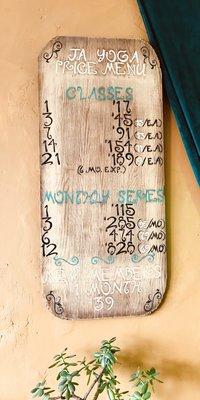 JA YOGA
PRICE MENU
CLASSES
1 $17
3 $45
7 $91
14 $154
21 $189
(6 MO. EXP.)
MONTHLY SERIES
1 $115
3 $285
6 $474
12 $828
NEW MEMBERS
1 MONTH
39